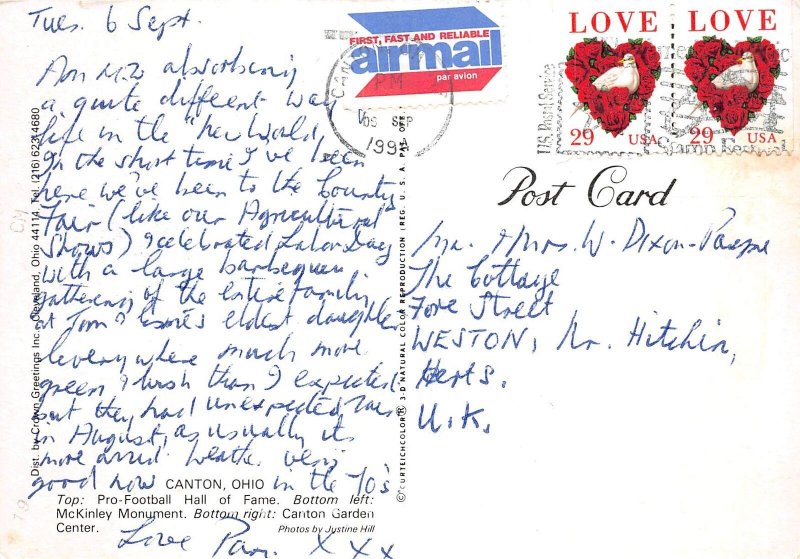 Tues. 6 Sept.
Am now absorbing
a quite different way
life in the "New World,
In the short time I've been
here we've been to the County
Fair (like our Agricultural
Shows) & celebrated Labor Day
with a large barbeque &
gathering of the entire family
at Tom & eldest daughter
& everywhere much more
green & lush than I expected
but they had unexpected rain
in August, as usually its
more arid. Weather very
good now in the 70's
Love Pam. X X X
CANTON, OHIO
Top: Pro-Football Hall of Fame. Bottom left:
McKinley Monument. Bottom right: Canton Garden
Center.
Photos by Justine Hill
Dist. by Crown Greetings Inc., Cleveland, Ohio 44114 Tel. (216) 62344680
OH
© CURTEICHCOLOR® 3-D NATURAL COLOR REPRODUCTION (REG. U. S. A. PAT. OFF.
FIRST, FAST AND RELIABLE
airmail
par avion
CAN
PM
09 SEP
U.S. Postal Service
LOVE
29 USA
LOVE
29 USA
Post Card
Mr. & Mrs. W. Dixon-
The Cottage
Fore Street
WESTON, Nr. Hitchin,
Herts.
U.K.